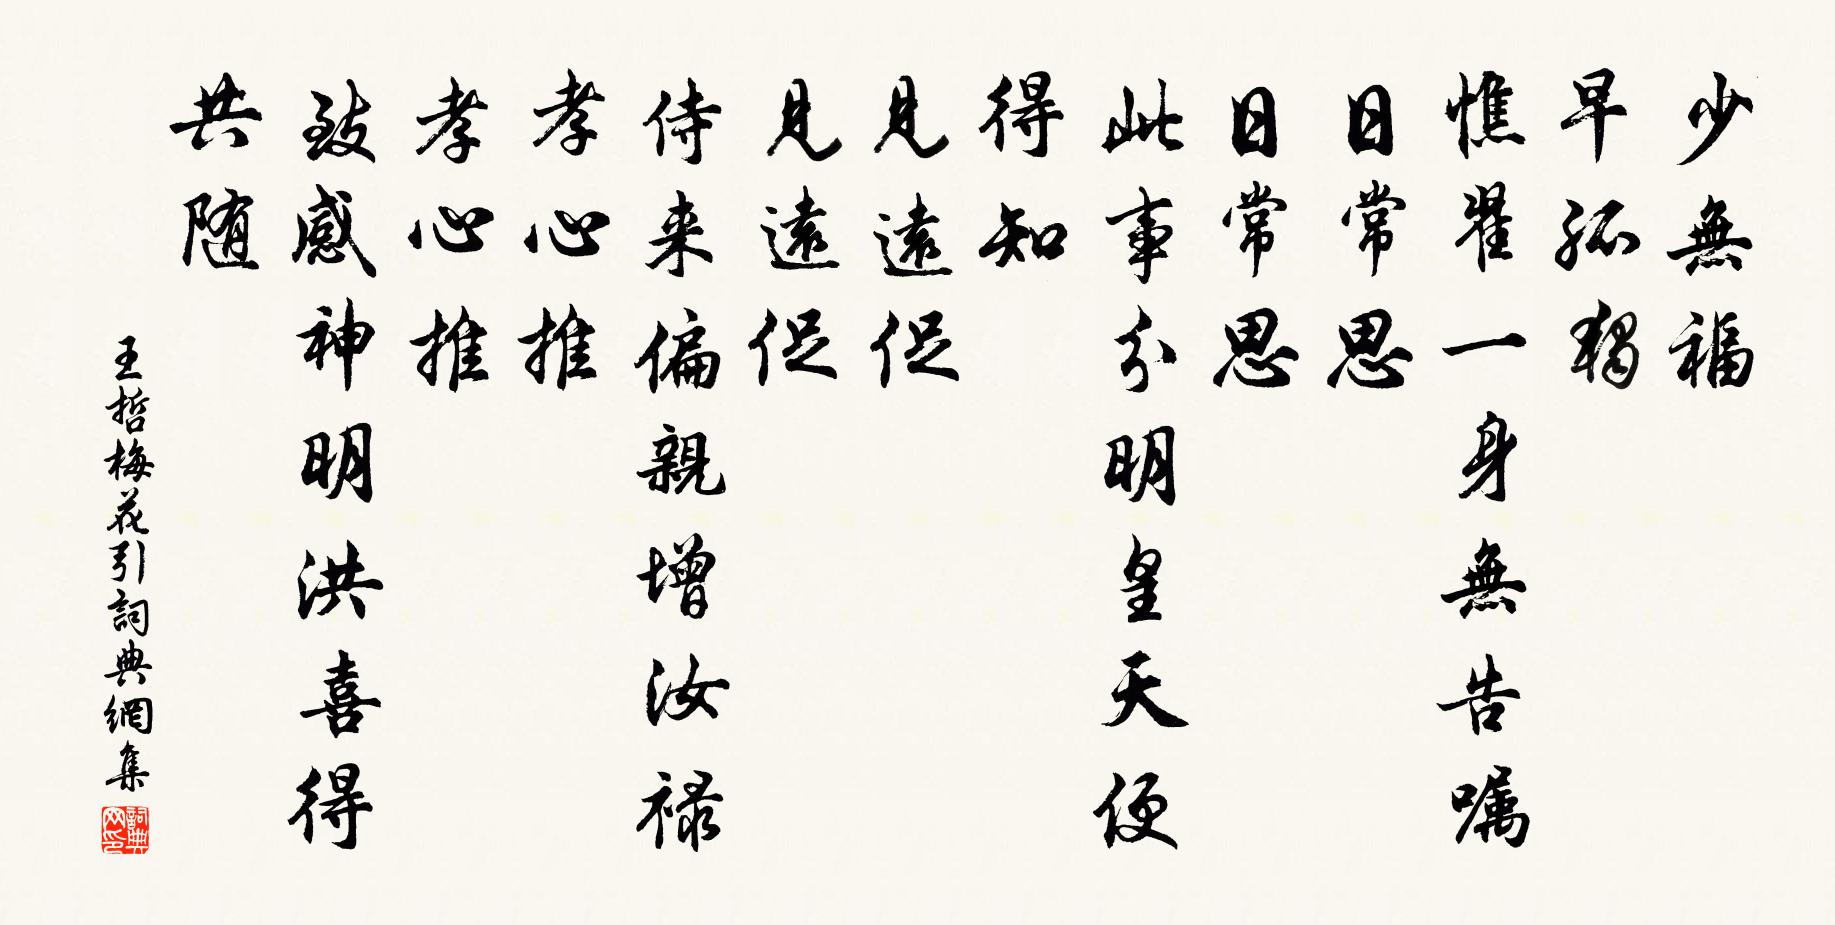 少無福
早孤獨
憔翟一身無告嘱
日常思
日常思
此事分明皇天便
得知
見遠促
見遠促
侍来偏親增汝禄
孝心推
孝心推
致感神明洪喜得
共随
王哲梅花引詞典網集
詞典網印